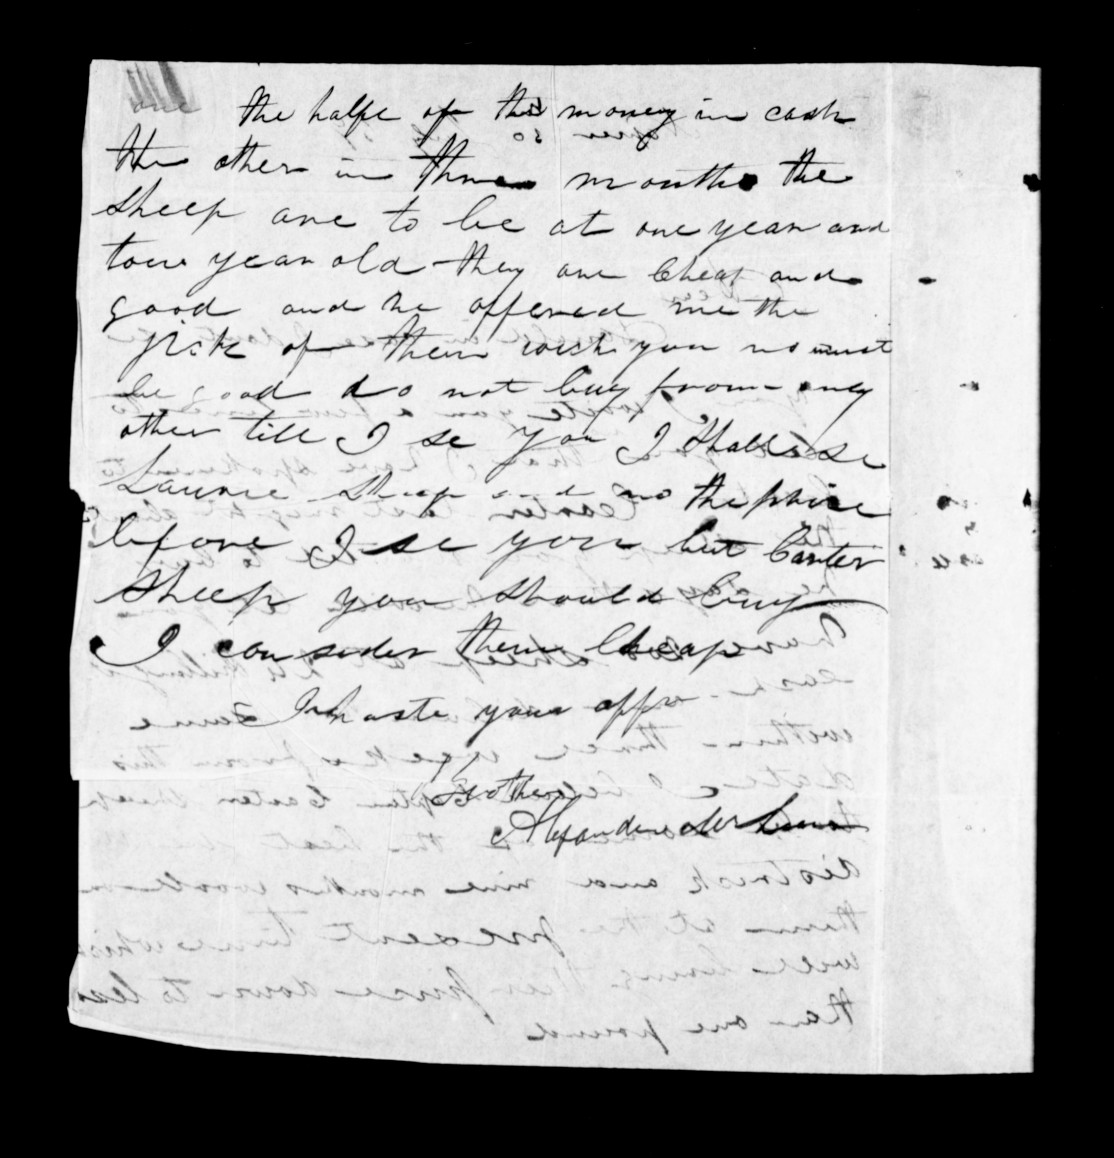 one the halfe of the money in cash
the other in three months the
Sheep are to be at one year and
tow year old they are Cheap and
good and he offered me the
pick of them wich you no must
be good do not buy from any
other till I se you I shall se
Laurie Sheep and no the prise
before I se you but Canter
Sheep you should buy
I consider them Cheap
In haste your affe
Brother
Alexander McLean